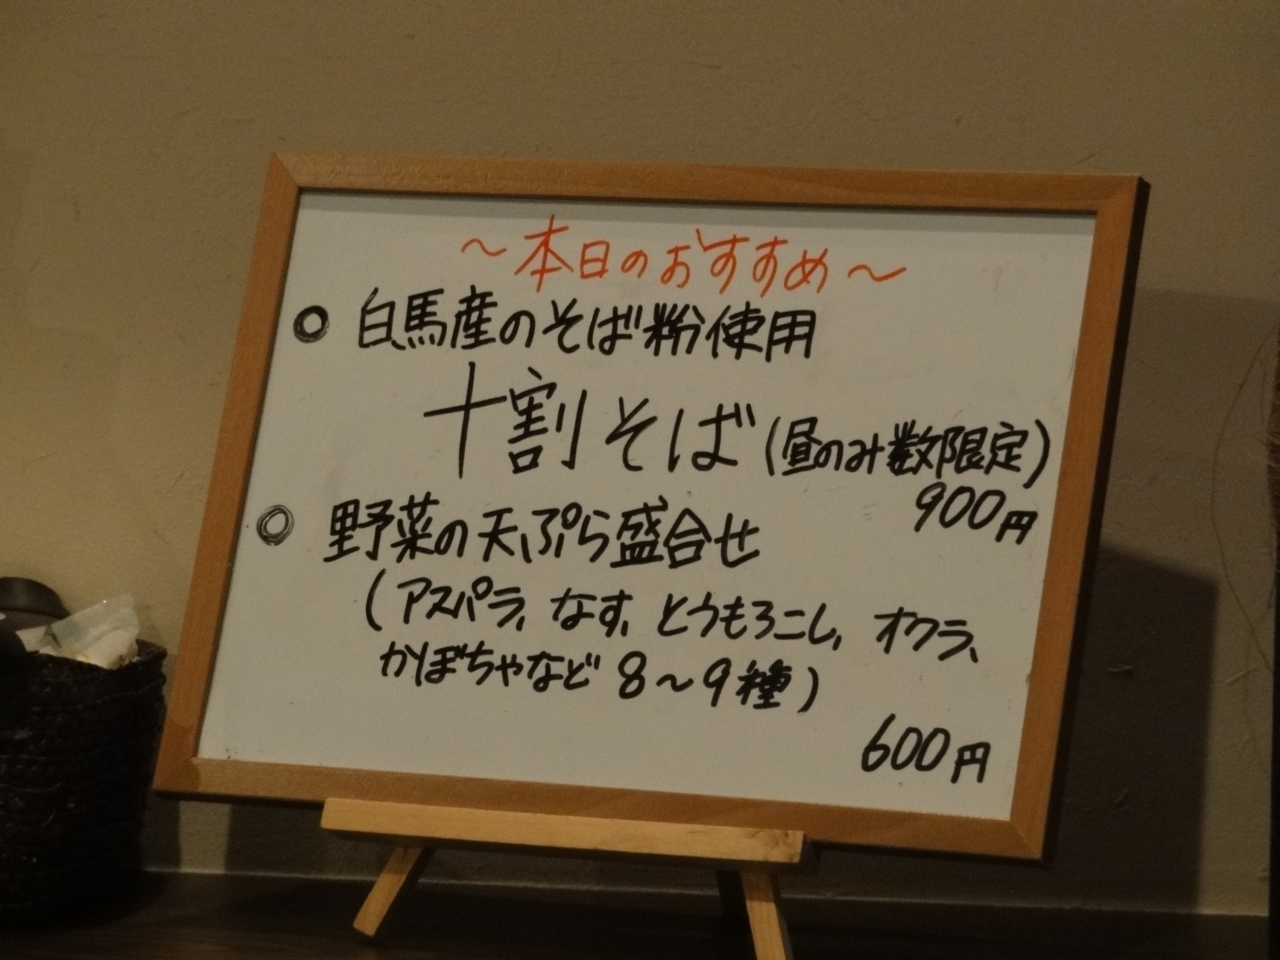 ～本日のおすすめ～
◎ 白馬産のそば粉使用
十割そば(昼のみ数限定)
900円
◎ 野菜の天ぷら盛合せ
(アスパラ、なす、とうもろこし、オクラ、
かぼちゃなど 8～9種)
600円